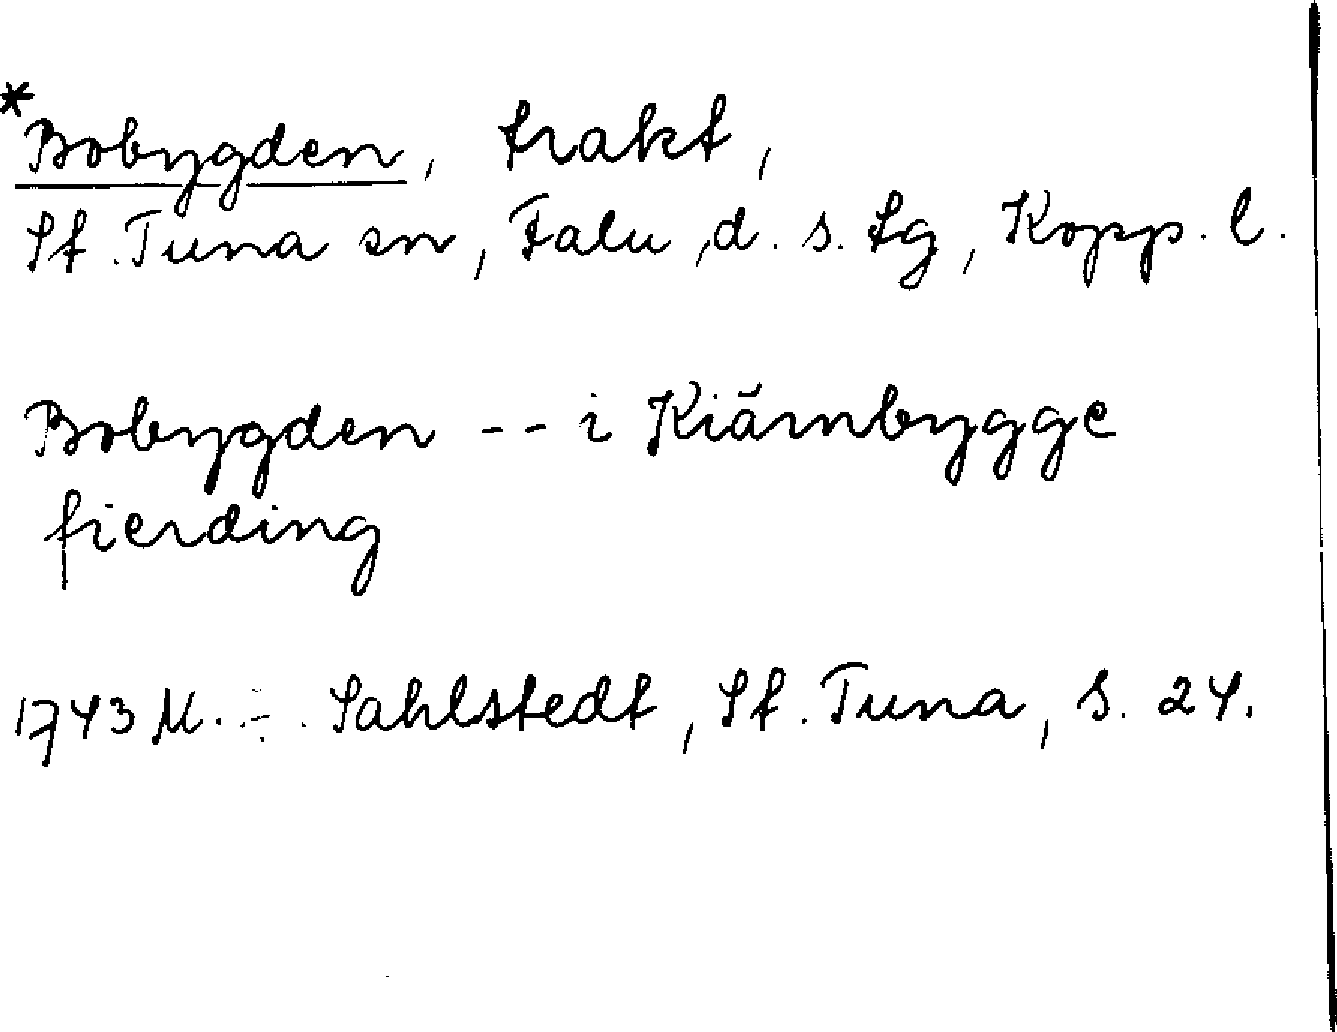 *Bobygden, trakt,
St. Tuna sn, Falu, d. s. tg, Kopp. l.
Bobygden -- i Kiärnbygge
fierding
1743 M. Sahlstedt, St. Tuna, S. 24.